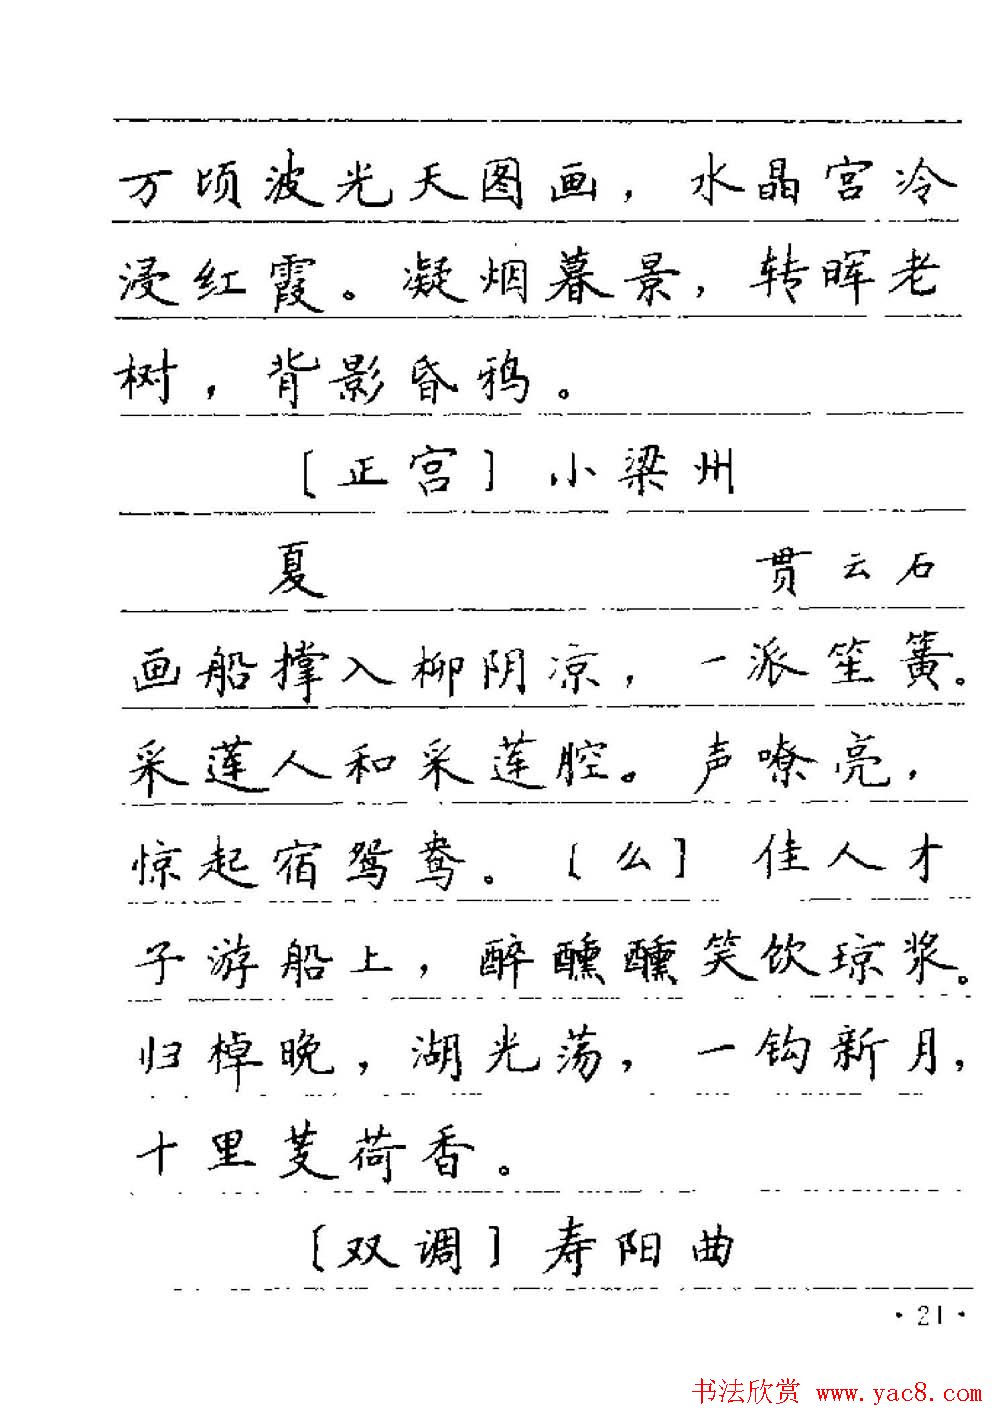 万顷波光天图画，水晶宫冷
浸红霞。凝烟暮景，转晖老
树，背影昏鸦。
［正宫］小梁州
夏 贯云石
画船撑入柳阴凉，一派笙簧。
采莲人和采莲腔。声嘹亮，
惊起宿鸳鸯。［么］佳人才
子游船上，醉醺醺笑饮琼浆。
归棹晚，湖光荡，一钩新月，
十里芰荷香。
［双调］寿阳曲
·21·
书法欣赏 www.yac8.com